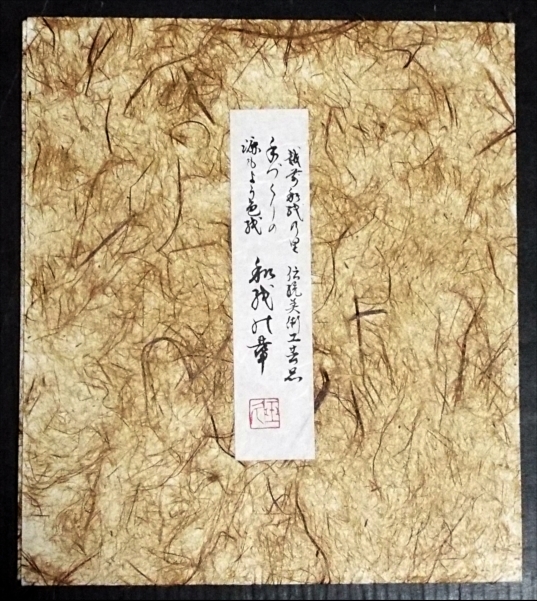 越前和紙の里 伝統美術工芸品
手づくりの
源もよう色紙
和紙の華